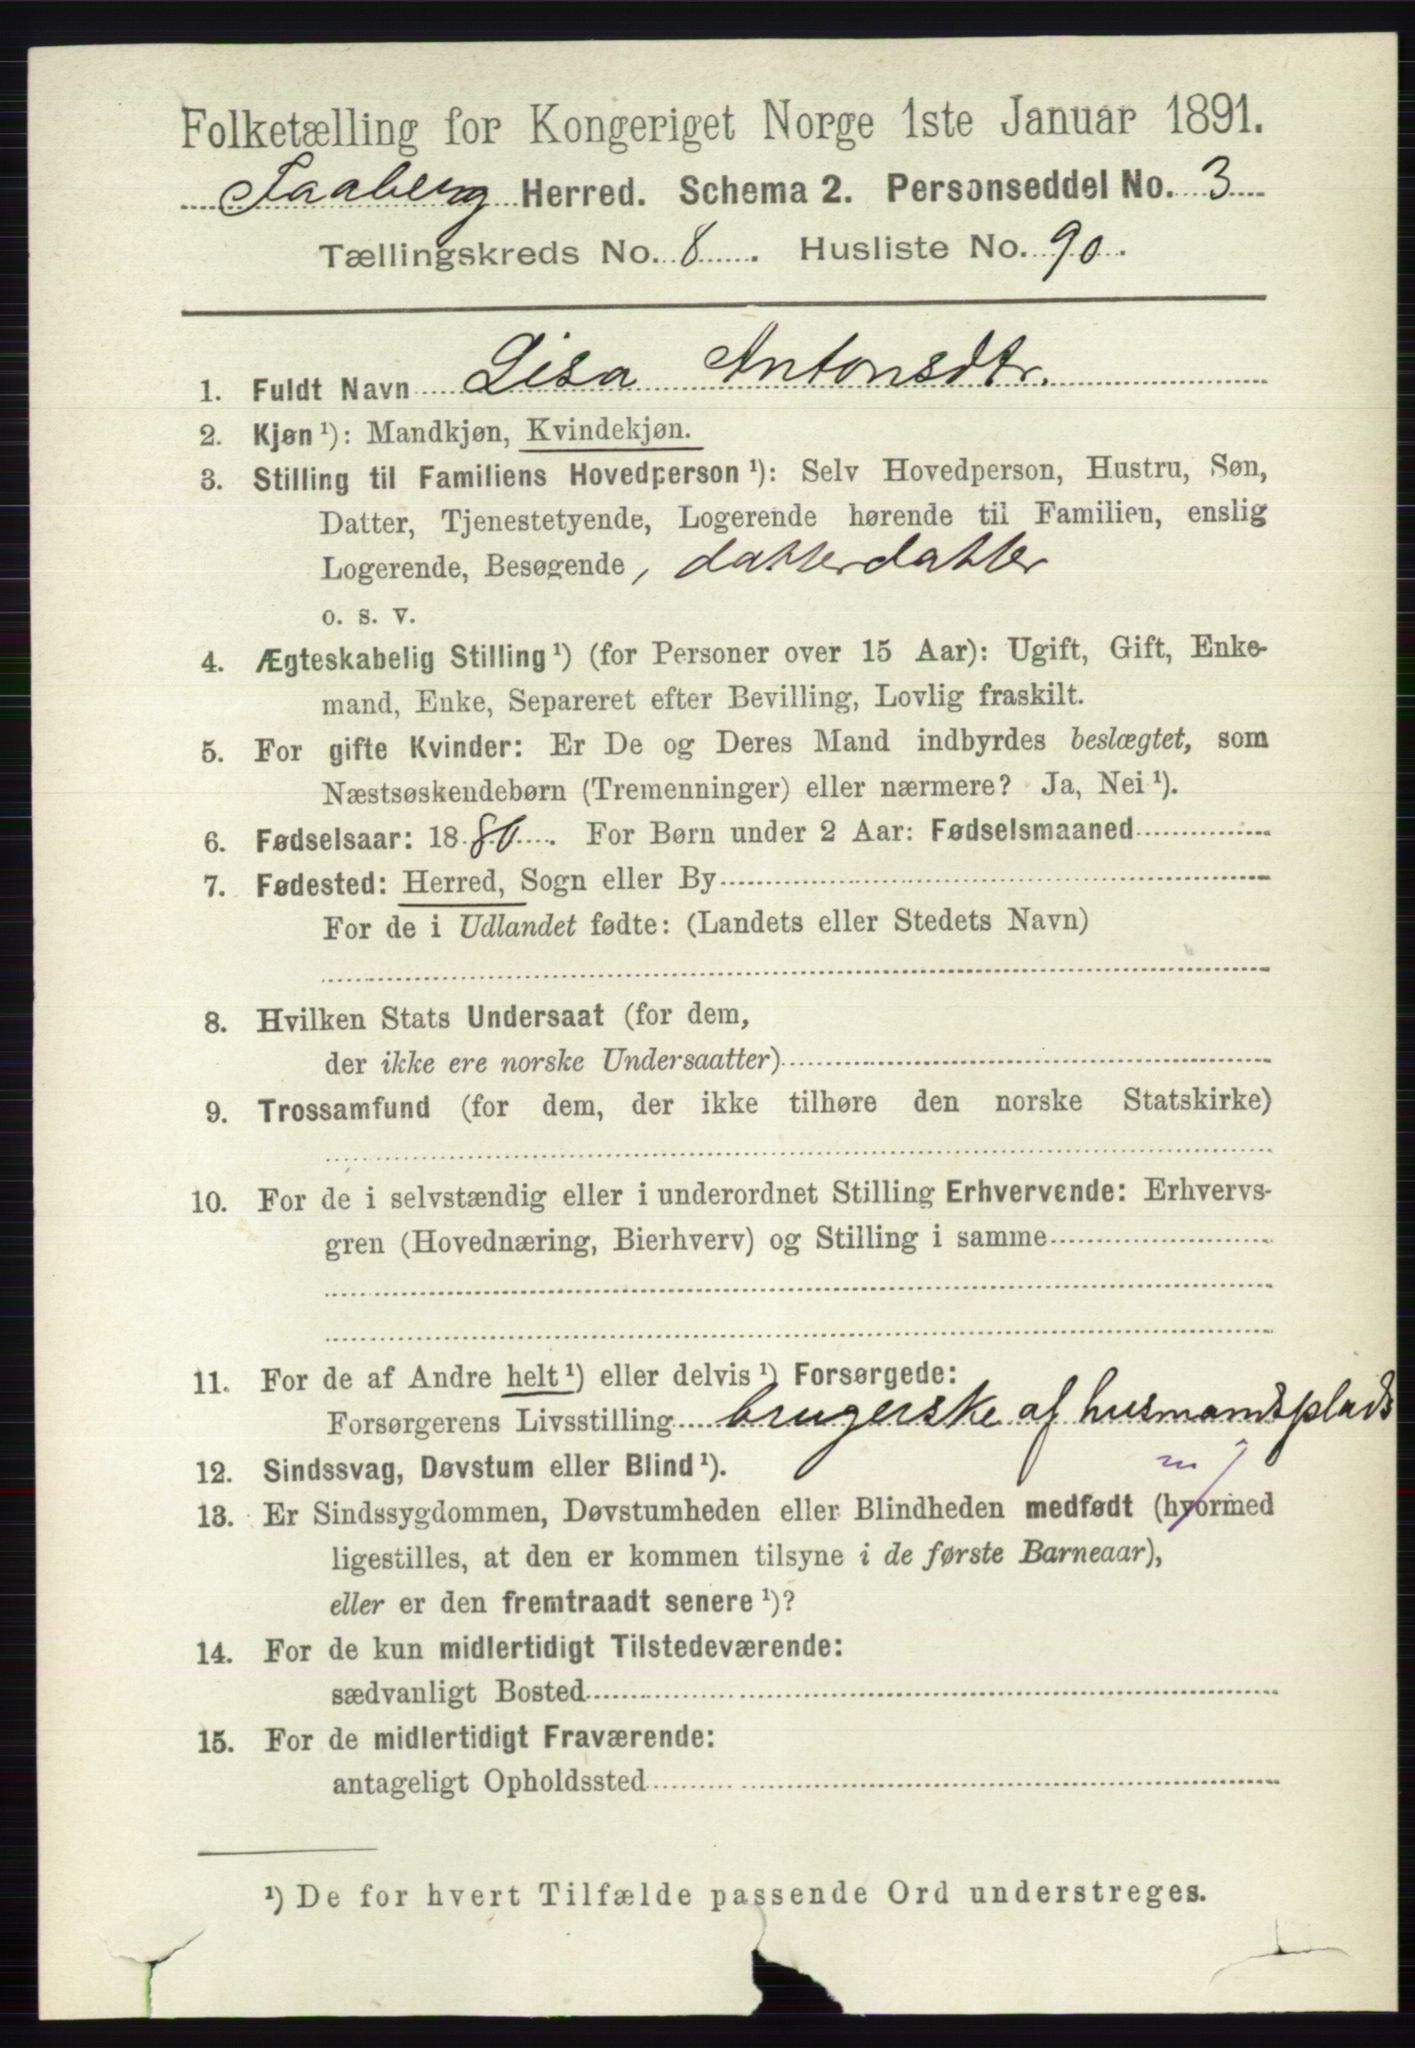 Folketælling for Kongeriget Norge 1ste Januar 1891.
Faaberg Herred. Schema 2. Personseddel No. 3
Tællingskreds No. 8. Husliste No. 90.
1. Fuldt Navn Lisa Antonsdtr.
2. Kjøn ¹): Mandkjøn, Kvindekjøn.
3. Stilling til Familiens Hovedperson ¹): Selv Hovedperson, Hustru, Søn,
Datter, Tjenestetyende, Logerende hørende til Familien, enslig
Logerende, Besøgende, datterdatter
o. s. v.
4. Ægteskabelig Stilling ¹) (for Personer over 15 Aar): Ugift, Gift, Enke-
mand, Enke, Separeret efter Bevilling, Lovlig fraskilt.
5. For gifte Kvinder: Er De og Deres Mand indbyrdes beslægtet, som
Næstsøskendebørn (Tremenninger) eller nærmere? Ja, Nei ¹).
6. Fødselsaar: 1880. For Børn under 2 Aar: Fødselsmaaned
7. Fødested: Herred, Sogn eller By
For de i Udlandet fødte: (Landets eller Stedets Navn)
8. Hvilken Stats Undersaat (for dem,
der ikke ere norske Undersaatter)
9. Trossamfund (for dem, der ikke tilhøre den norske Statskirke)
10. For de i selvstændig eller i underordnet Stilling Erhvervende: Erhvervs-
gren (Hovednæring, Bierhverv) og Stilling i samme
11. For de af Andre helt ¹) eller delvis ¹) Forsørgede:
Forsørgerens Livsstilling brugerske af husmandsplads
12. Sindssvag, Døvstum eller Blind ¹).
13. Er Sindssygdommen, Døvstumheden eller Blindheden medfødt (hvormed
ligestilles, at den er kommen tilsyne i de første Barneaar),
eller er den fremtraadt senere ¹)?
14. For de kun midlertidigt Tilstedeværende:
sædvanligt Bosted
15. For de midlertidigt Fraværende:
antageligt Opholdssted
¹) De for hvert Tilfælde passende Ord understreges.